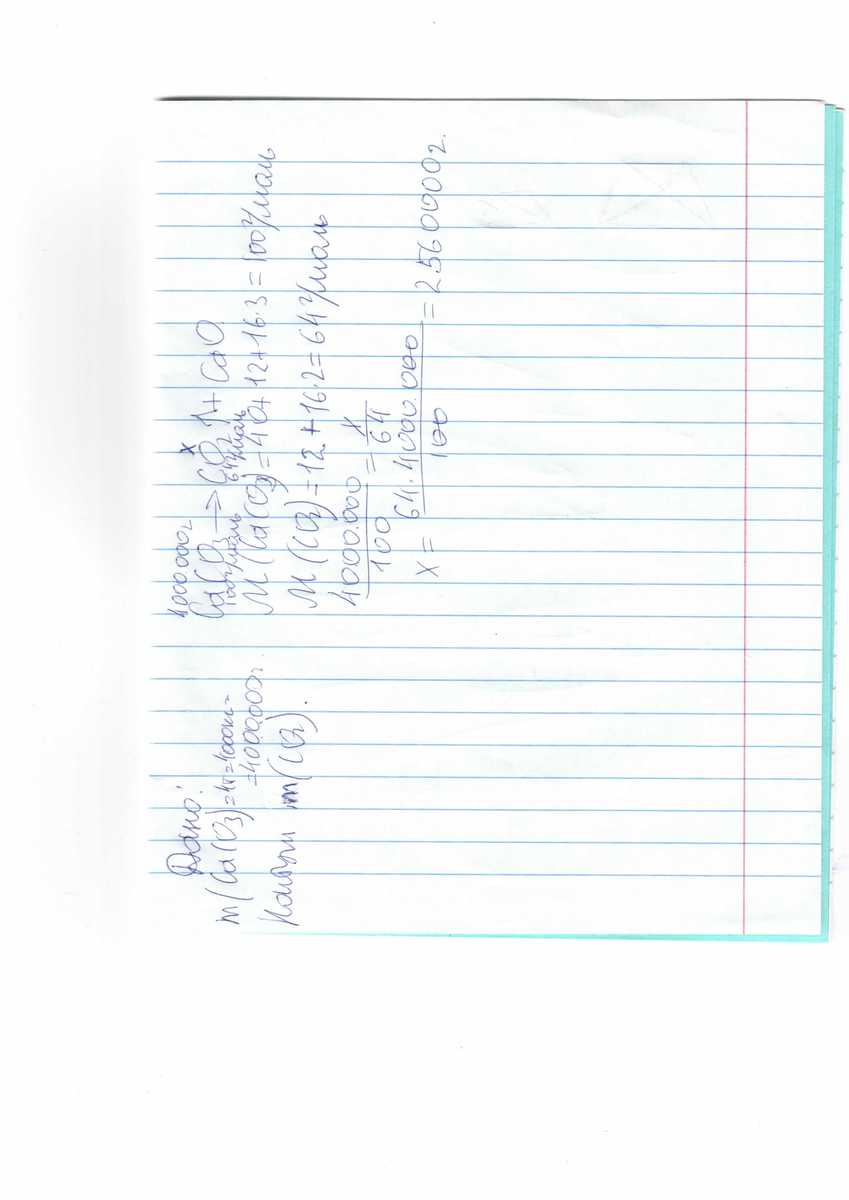 Дано:
m(CaCO3)=4т=4000кг=
=4000000г.
Найти m(CO2).
4000000г x
CaCO3 → CO2↑ + CaO
100г/моль 64г/моль
M(CaCO3)=40+12+16·3=100г/моль
M(CO2)=12+16·2=64г/моль
4000.000/100 = x/64
x = 64·4000.000/100 = 2560000г.